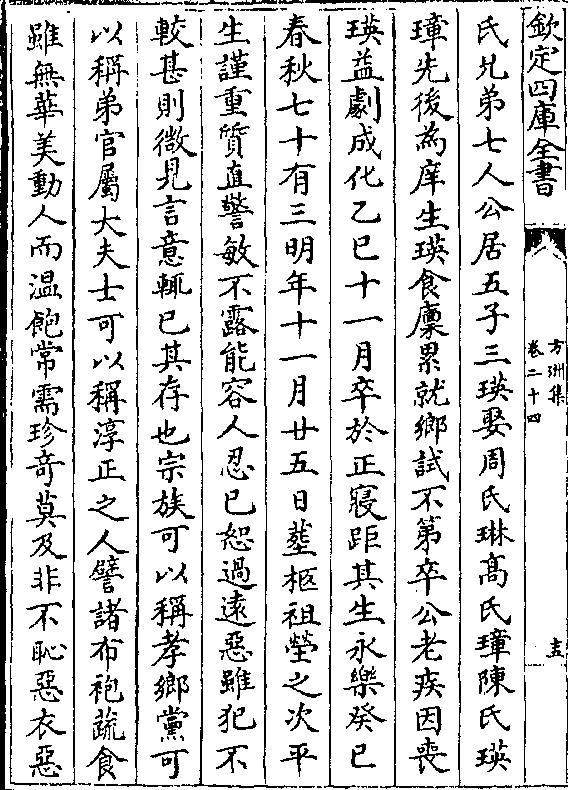 欽定四庫全書
方洲集
卷二十四
氏兄弟七人公居五子三瑛娶周氏琳髙氏璋陳氏瑛
璋先後為庠生瑛食廪累就鄉試不第卒公老疾因喪
瑛益劇成化乙巳十一月卒於正寢距其生永樂癸巳
春秋七十有三明年十一月廿五日塟柩祖塋之次平
生謹重質直警敏不露能容人忍已恕過逺惡雖犯不
較甚則微見言意輒已其存也宗族可以稱孝鄉黨可
以稱弟官屬大夫士可以稱淳正之人譬諸布袍蔬食
雖無華美動人而温飽常需珍竒莫及非不恥惡衣惡